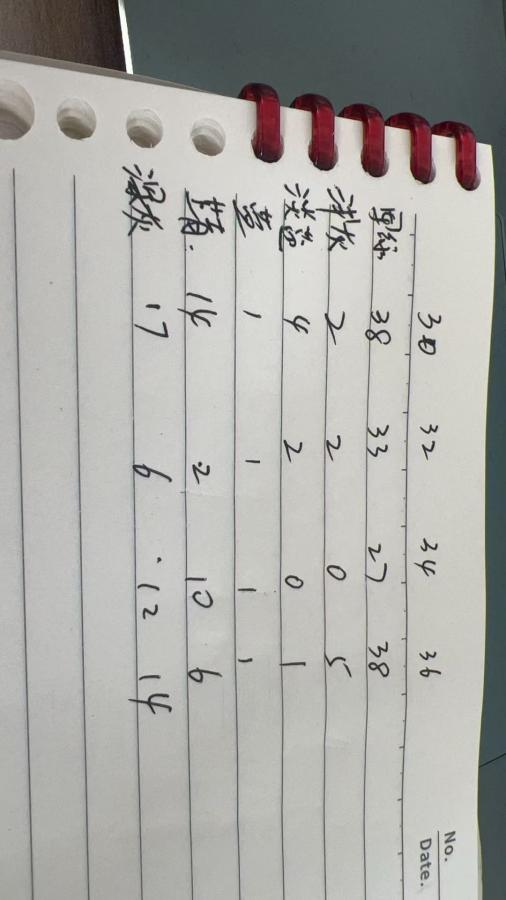 No.
Date.
30 32 34 36
军绿 38 33 27 38
浅灰 2 2 0 5
4 2 0 1
1 1 1 1
14 2 10 6
深灰 17 6 12 14